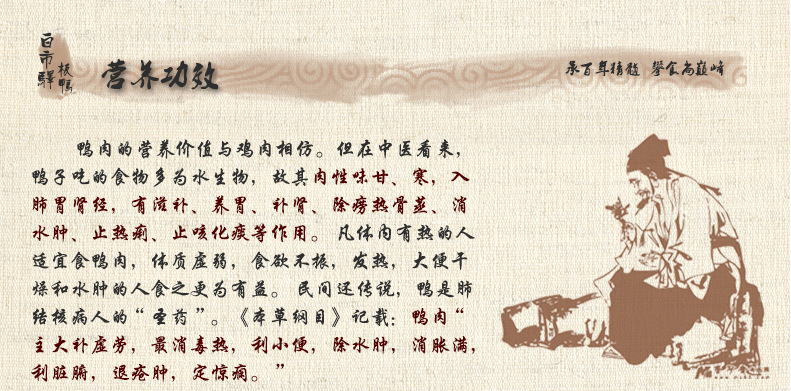 白市驿
板鸭
营养功效
承百年精髓 攀食尚巅峰
鸭肉的营养价值与鸡肉相仿。但在中医看来，
鸭子吃的食物多为水生物，故其肉性味甘、寒，入
肺胃肾经，有滋补、养胃、补肾、除痨热骨蒸、消
水肿、止热痢、止咳化痰等作用。凡体内有热的人
适宜食鸭肉，体质虚弱，食欲不振，发热，大便干
燥和水肿的人食之更为有益。民间还传说，鸭是肺
结核病人的“圣药”。《本草纲目》记载：鸭肉“
主大补虚劳，最消毒热，利小便，除水肿，消胀满，
利脏腑，退疮肿，定惊痫。”